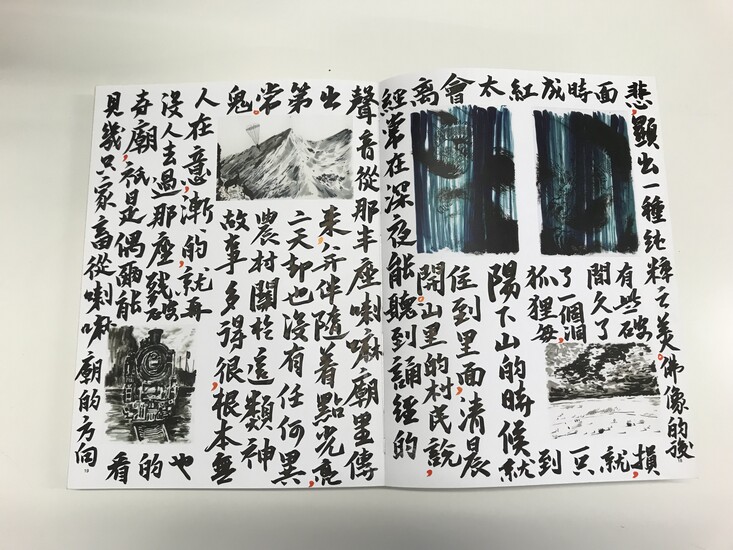 悲,顯出一種純粹之美。佛像的後
面有些破損,
時間久了,就
成了一個洞,只
紅狐狸每到
太陽下山的時候就
會住到里面,清晨
离開。山里的村民說,
經常在深夜能聽到誦經的
聲音從那半座喇嘛廟里傳
出來,并伴隨着點光亮,
第二天却也沒有任何異
常。農村關於這類神
鬼故事多得很,根本無
人在意,漸、的,就再也
沒人去過那座残破的
寺廟,祇是偶爾能看
見幾只家畜從喇嘛廟的方向